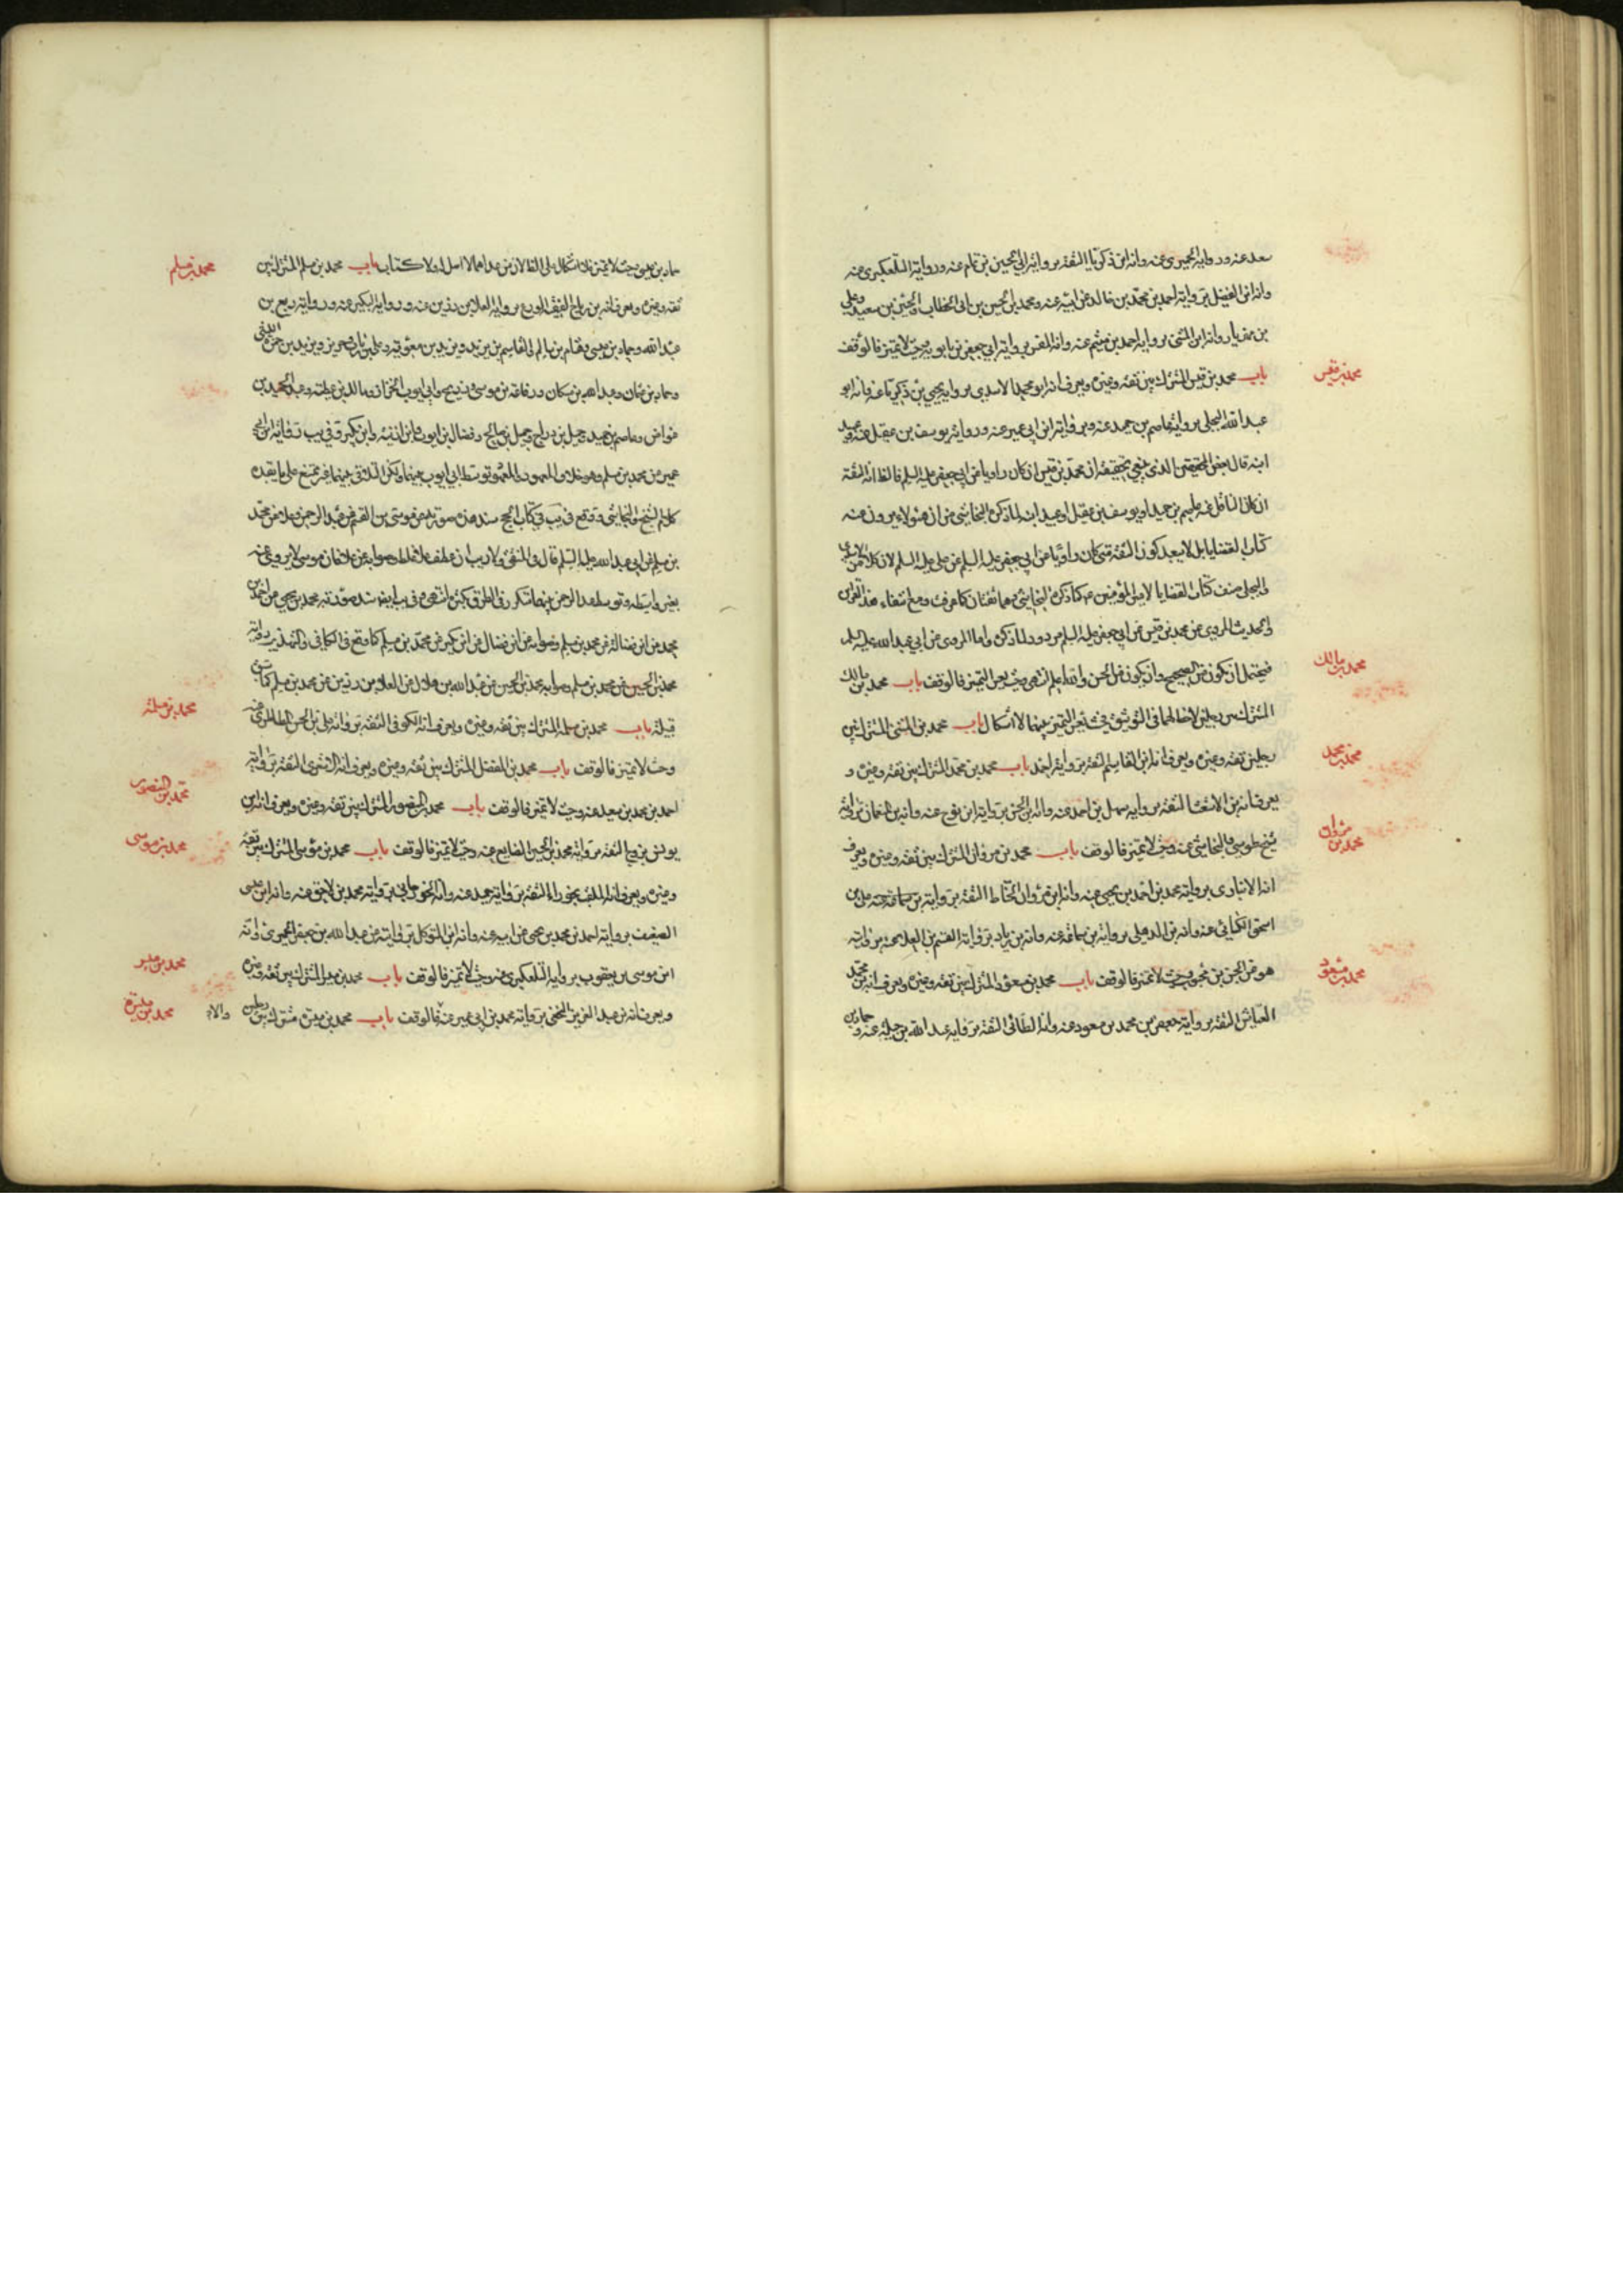 سعد عنه ورواية الحميري عنه وانه ابن ذكريا الثقة برواية ابي الحسين بن تمام عنه ورواية التلعكبري عنه
وانه ابن الفضيل برواية احمد بن محمد بن خالد عن ابيه عنه ومحمد بن الحسين بن ابي الخطاب والحسين بن سعيد وعلي
بن مهزيار وانه ابن المثنى برواية احمد بن ميثم عنه وانه برواية ابي جعفر بن بابويه وحيث لا تميز فالوقف
محمد بن قيس
باب محمد بن قيس المشترك بين ثقة وغيره ويعرف انه ابو محمد الاسدي برواية يحيى بن ذكريا عنه وانه ابو
عبد الله البجلي برواية عاصم بن حميد عنه وبرواية ابن ابي عمير عنه ورواية يوسف بن عقيل عنه وعبيد
ابنه قال بعض المحققين الذي ينبغي تحقيقه ان محمد بن قيس ان كان راويا عن ابي جعفر عليه السلم فالظ انه الثقة
ان كان الناقل عنه عاصم بن حميد او يوسف بن عقيل او عبيد ابنه لما ذكره النجاشي من ان هؤلاء يروون عنه
كتاب القضايا بل لا يبعد كونه الثقة متى كان راويا عن ابي جعفر عليه السلم عن علي عليه السلم لان كلا من الاسدي
والبجلي صنف كتاب القضايا لامير المؤمنين ع كما ذكره النجاشي وهما ثقتان كما عرفت ومع انتفاء هذه القراين
والحديث المروي عن محمد بن قيس عن ابي جعفر عليه السلم مردود لما ذكره واما المروي عن ابي عبد الله عليه السلم
محمد بن مالك
فيحتمل ان يكون من الصحيح وان يكون من الحسن والله اعلم انتهى وحيث يعسر التميز فالوقف باب محمد بن مالك
المشترك بين رجلين لاحظ لهما في التوثيق فحيث يعسر التميز بينهما لا اشكال باب محمد بن المثنى المشترك بين
محمد بن محمد
رجلين ثقة وغيره ويعرف انه ابن القاسم الثقة برواية احمد باب محمد بن محمد المشترك بين ثقة وغيره و
يعرف انه بن الاشعث الثقة برواية سهل بن احمد عنه وانه ابن الحسن برواية ابن نوح عنه وانه بن النعمان برواية
محمد بن مروان
شيخ طوسي والنجاشي عنه وحيث لا تميز فالوقف باب محمد بن مروان المشترك بين ثقة وغيره ويعرف
انه الانباري برواية محمد بن احمد بن يحيى عنه وانه ابن مروان الحناط الثقة برواية بن سماعة عنه علي بن
اسحق الكسائي عنه وانه بن الذهلي برواية بن سماعة عنه وانه بن زياد برواية القسم بن العلا عنه برواية
محمد بن مسعود
هو عن الحسن بن محبوب وحيث لا تميز فالوقف باب محمد بن مسعود المشترك بين ثقة وغيره ويعرف انه بن محمد
العياشي الثقة برواية جعفر بن محمد بن مسعود عنه وانه الطائي الثقة برواية عبد الله بن جبلة عنه وحماد بن
محمد بن مسلم
حماد بن عيسى وحيث لا تميز فلا اشكال باب محمد بن مسلم المشترك بين
ثقة وغيره ويعرف انه بن رباح الثقة الورع برواية العلا بن رزين عنه ورواية ربيع بن
عبد الله وحماد بن عيسى وهشام بن سالم والقاسم بن بريد وبريد بن معوية وعلي بن رئاب وحريز ويزيد بن
وحماد بن عثمان وعبد الله بن مسكان ورفاعة بن موسى وذريح وابي ايوب الخزاز وخالد بن عطية وعبد الحميد بن
عواض وعاصم بن حميد وجميل بن دراج وجميل بن صالح وفضالة بن ايوب وابن اذينة وابن بكير وفي يب رواية ابن ابي
عمير عن محمد بن مسلم وهو خلاف المعهود والمعهود توسط ابي ايوب بينهما ولكن التلاقي بينهما غير ممتنع على ما يفيده
كلام الشيخ والنجاشي ووقع في يب في كتاب الحج سند هذه صورته عن موسى بن القسم عن عبد الرحمن وعلا عن محمد
بن مسلم عن ابي عبد الله عليه السلم قال في المنتقى ولا ريب ان عطف علا غلط وصوابه عن علا فان موسى لا يروي عنه
بغير واسطة وتوسط عبد الرحمن بينهما متكرر في الطرق كثيرا انتهى وفي يب ايضا سند صورته محمد بن يحيى عن احمد بن
محمد عن ابن فضال عن محمد بن مسلم وصوابه عن ابن فضال عن ابن بكير عن محمد بن مسلم كما وقع في الكافي والتهذيب رواية
محمد بن الحسين عن محمد بن مسلم وصوابه محمد بن الحسين عن عبد الله بن هلال عن العلا بن رزين عن محمد بن مسلم كما سبق
محمد بن مسلمة
قبيله باب محمد بن مسلمة المشترك بين ثقة وغيره ويعرف انه الكوفي الثقة برواية علي بن الحسن الطاطري عنه
وحيث لا تميز فالوقف باب محمد بن المفضل المشترك بين ثقة وغيره ويعرف انه الاشعري الثقة برواية
محمد بن المنصور
احمد بن محمد بن سعيد عنه وحيث لا تميز فالوقف باب محمد بن المنصور المشترك بين ثقة وغيره ويعرف انه ابن
محمد بن موسى
يونس بزرج الثقة برواية محمد بن الحسين الصايغ عنه وحيث لا تميز فالوقف باب محمد بن موسى المشترك بين ثقة
وغيره ويعرف انه الملقب بخوراء الثقة برواية حميد عنه وانه برواية محمد بن لاحق عنه وانه ابن عيسى
الضعيف برواية احمد بن محمد بن يحيى عن ابيه عنه وانه ابن المتوكل بروايته عن عبد الله بن جعفر الحميري وانه
محمد بن ميسر
ابن موسى بن يعقوب برواية التلعكبري عنه وحيث لا تميز فالوقف باب محمد بن ميسر المشترك بين ثقة وغيره
محمد بن ميسرة
ويعرف انه بن عبد العزيز النخعي برواية محمد بن ابي عمير عنه فالوقف باب محمد بن ميسرة مشترك بين رجلين